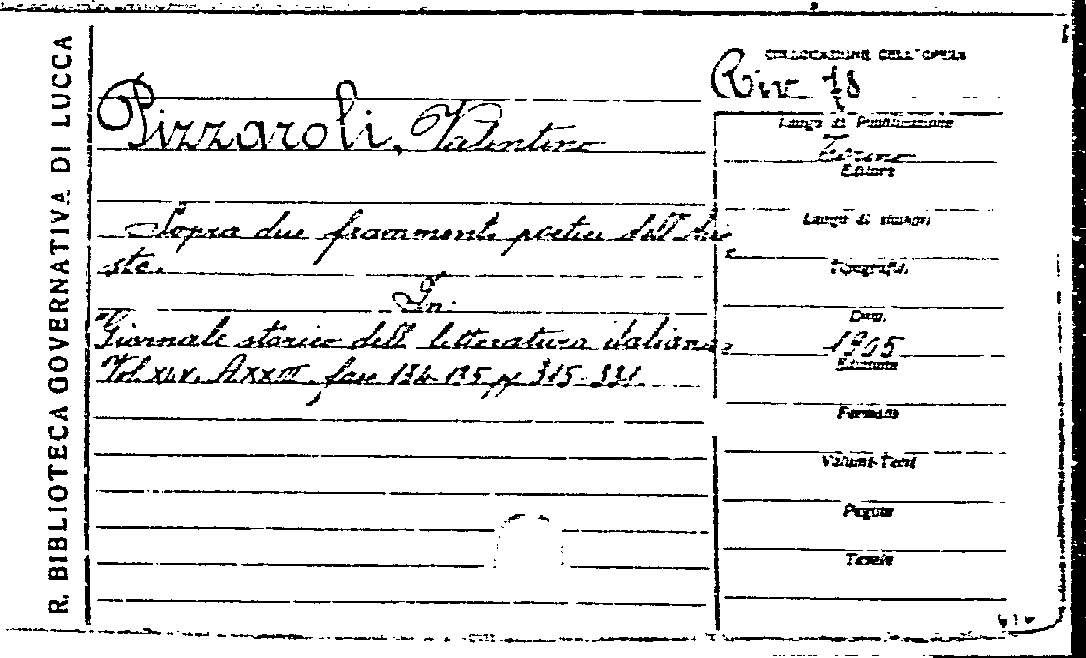 R. BIBLIOTECA GOVERNATIVA DI LUCCA
Pizzaroli, Valentino
Sopra due frammenti poetici dell'Ario
sto.
In:
Giornale storico dell letteratura italiana
Vol. XLV. A XXIII fasc 134-135 pp 315-331
COLLOCAZIONE DELL'OPERA
Riv 18
Luogo di Pubblicazione
Torino
Editore
Luogo di stampa
Tipografia
Data
1905
Edizione
Formato
Volumi-Tomi
Pagine
Tavole